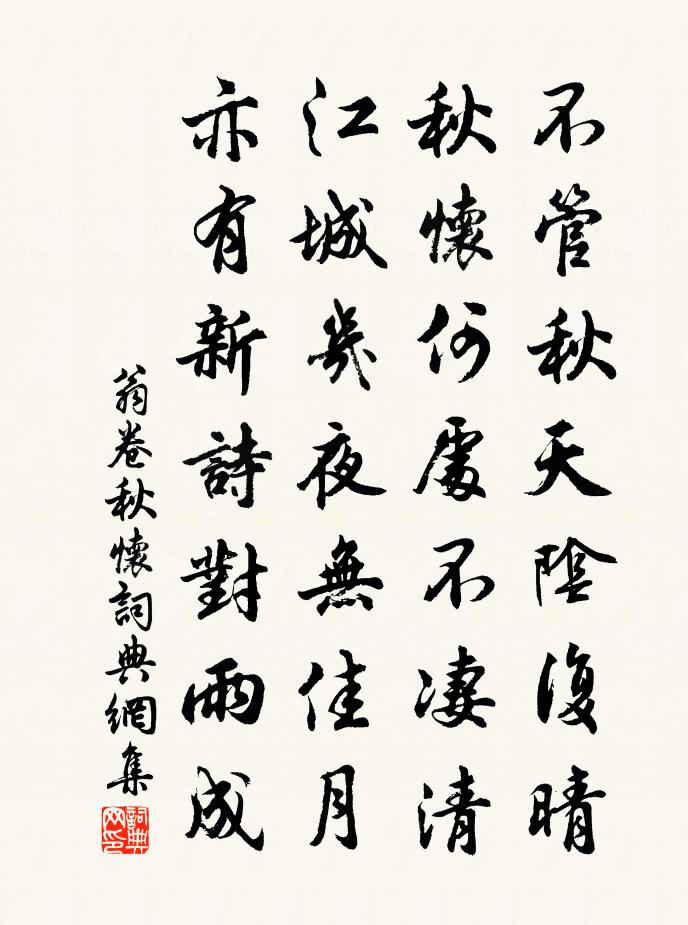 不管秋天陰復晴
秋懷何處不凄清
江城幾夜無佳月
亦有新詩對雨成
翁卷秋懷詞典網集
詞典网印